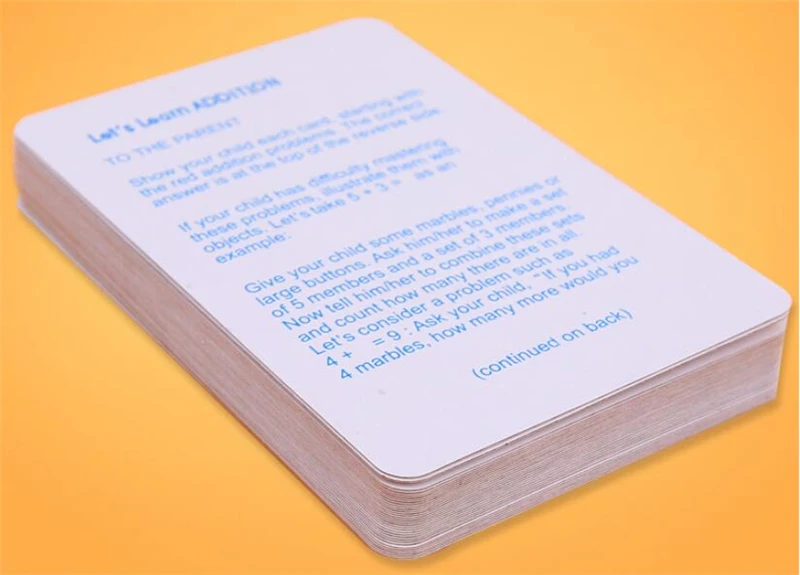 Let's Learn ADDITION
TO THE PARENT
Show your child each card, starting with
the red addition problems. The correct
answer is at the top of the reverse side.
If your child has difficulty mastering
these problems, illustrate them with
objects. Let's take 5 + 3 = as an
example:
Give your child some marbles, pennies or
large buttons. Ask him/her to make a set
of 5 members and a set of 3 members.
Now tell him/her to combine these sets
and count how many there are in all.
Let's consider a problem such as
4 + = 9 : Ask your child, "If you had
4 marbles, how many more would you
(continued on back)